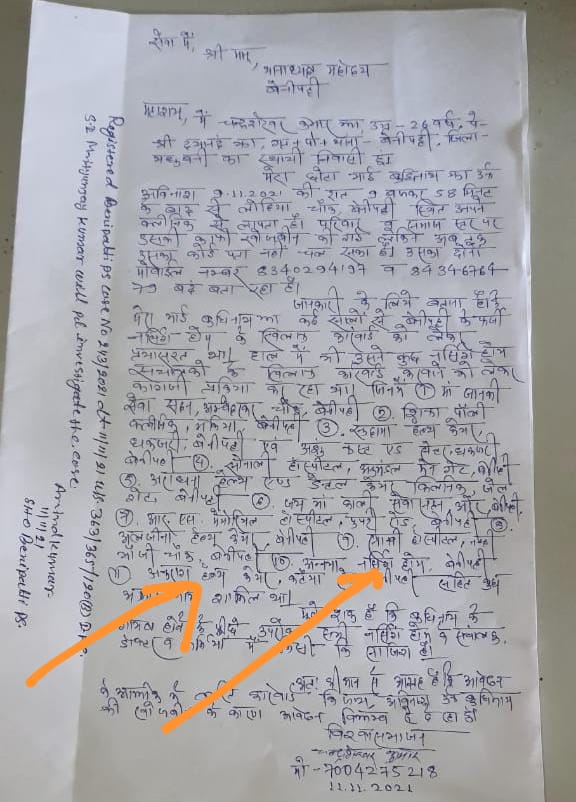 सेवा में,
श्री मान्,
थानाध्यक्ष महोदय
बेनीपट्टी
महाशय, मैं कुमार झा, उम्र - 26 वर्ष, पे-
श्री झा, थाना - बेनीपट्टी, जिला -
मधुबनी का स्थायी निवासी हूं।
मेरा छोटा भाई बुद्धिनाथ झा उर्फ
अविनाश 9.11.2021 की रात 9 बजकर 58 मिनट
के बाद से लोहिया चौक, बेनीपट्टी स्थित अपने
क्लीनिक से लापता है। परिवार व समाज स्तर पर
उसकी काफी खोजबीन की गई लेकिन अब तक
उसका कोई पता नहीं चल सका है। उसका दोनों
मोबाईल नम्बर 8340294197 व 84346764
79 बंद बता रहा है।
जानकारी के लिये बताना है कि
मेरा भाई बुद्धिनाथ झा कई सालों से बेनीपट्टी के फर्जी
नर्सिंग होम के खिलाफ कार्रवाई को लेकर
प्रयासरत था। हाल में भी उसने कुछ नर्सिंग होम
संचालकों के खिलाफ कार्रवाई करवाने को लेकर
कागजी प्रक्रिया कर रहा था। जिनमें ① मां जानकी
सेवा सदन, चौक, बेनीपट्टी ② शिवा पॉली
क्लीनिक, बेनीपट्टी ③ सुदामा हेल्थ केयर,
धकजरी, बेनीपट्टी एवं
बेनीपट्टी ④ सोनाली हॉस्पीटल, गेट, बेनीपट्टी
⑤ अराधना हेल्थ एण्ड डेन्टल केयर क्लिनिक, जेल
गेट, बेनीपट्टी ⑥ जय मां काली सेवा सदन, बेनीपट्टी
⑦ आर. एस. मेमोरियल हॉस्पीटल, रोड बेनीपट्टी ⑧
हेल्थ केयर, बेनीपट्टी ⑨ हॉस्पीटल,
चौक बेनीपट्टी ⑩ अनन्या नर्सिंग होम, बेनीपट्टी
⑪ अनुराग हेल्थ केयर, सहित कुछ
शामिल था।
मुझे शक है कि बुद्धिनाथ के
गायब होने के पीछे उपरोक्त नर्सिंग होम के संचालक,
डॉक्टर व में किसी की साजिश है।
अतः श्री मान से आग्रह है कि आवेदन
के आलोक में कार्रवाई कि जाय, अविनाश उर्फ बुद्धिनाथ
की खोजबीन के कारण आवेदन विलम्ब से दे रहा हूं।
विश्वासभाजन
कुमार
मो - 7004275218
11.11.2021
Registered Benipatti PS case No 243/2021 dt 11/11/21 u/s 363/365/120(B) I.P.C.
S.I Mritunjay Kumar will pl. investigate the case.
Arvind Kumar
11/11/21
SHO Benipatti PS.